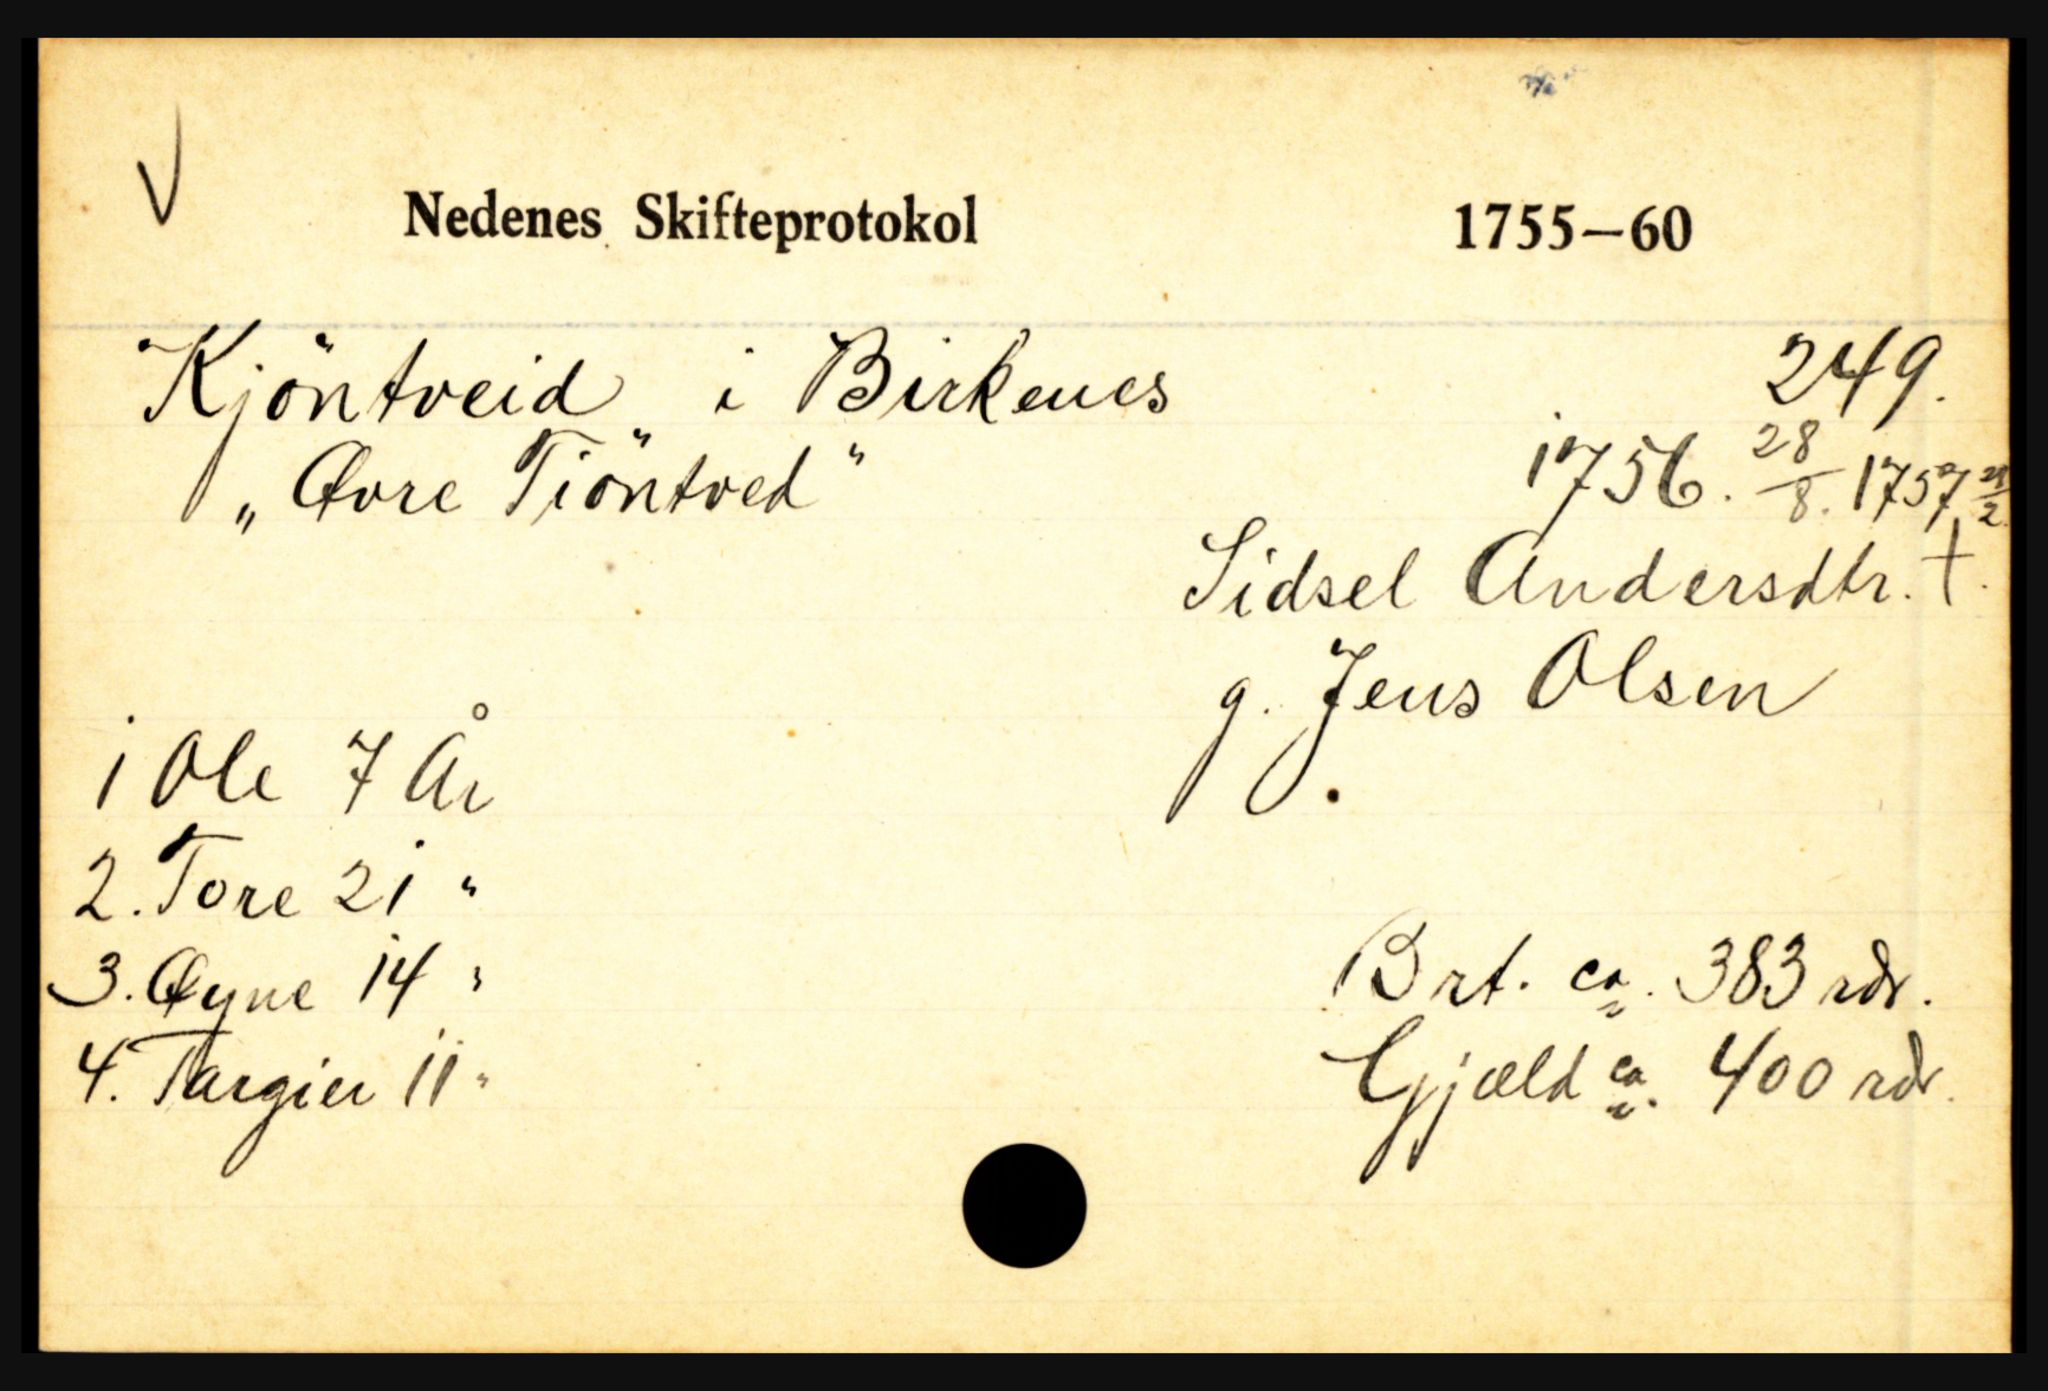 V
Nedenes Skifteprotokol 1755—60
Kjöntveid i Birkenes 249.
„Øvre Tiöntved" 1756. 28/8. 1757 28/2.
Sidsel Andersdtr. †.
g. Jens Olsen
1 Ole 7 År
2. Tore 21 "
3. Øyne 14 "
4. Targier 11 "
Brt. ca. 383 rdr.
Gjæld ca. 400 rdr.